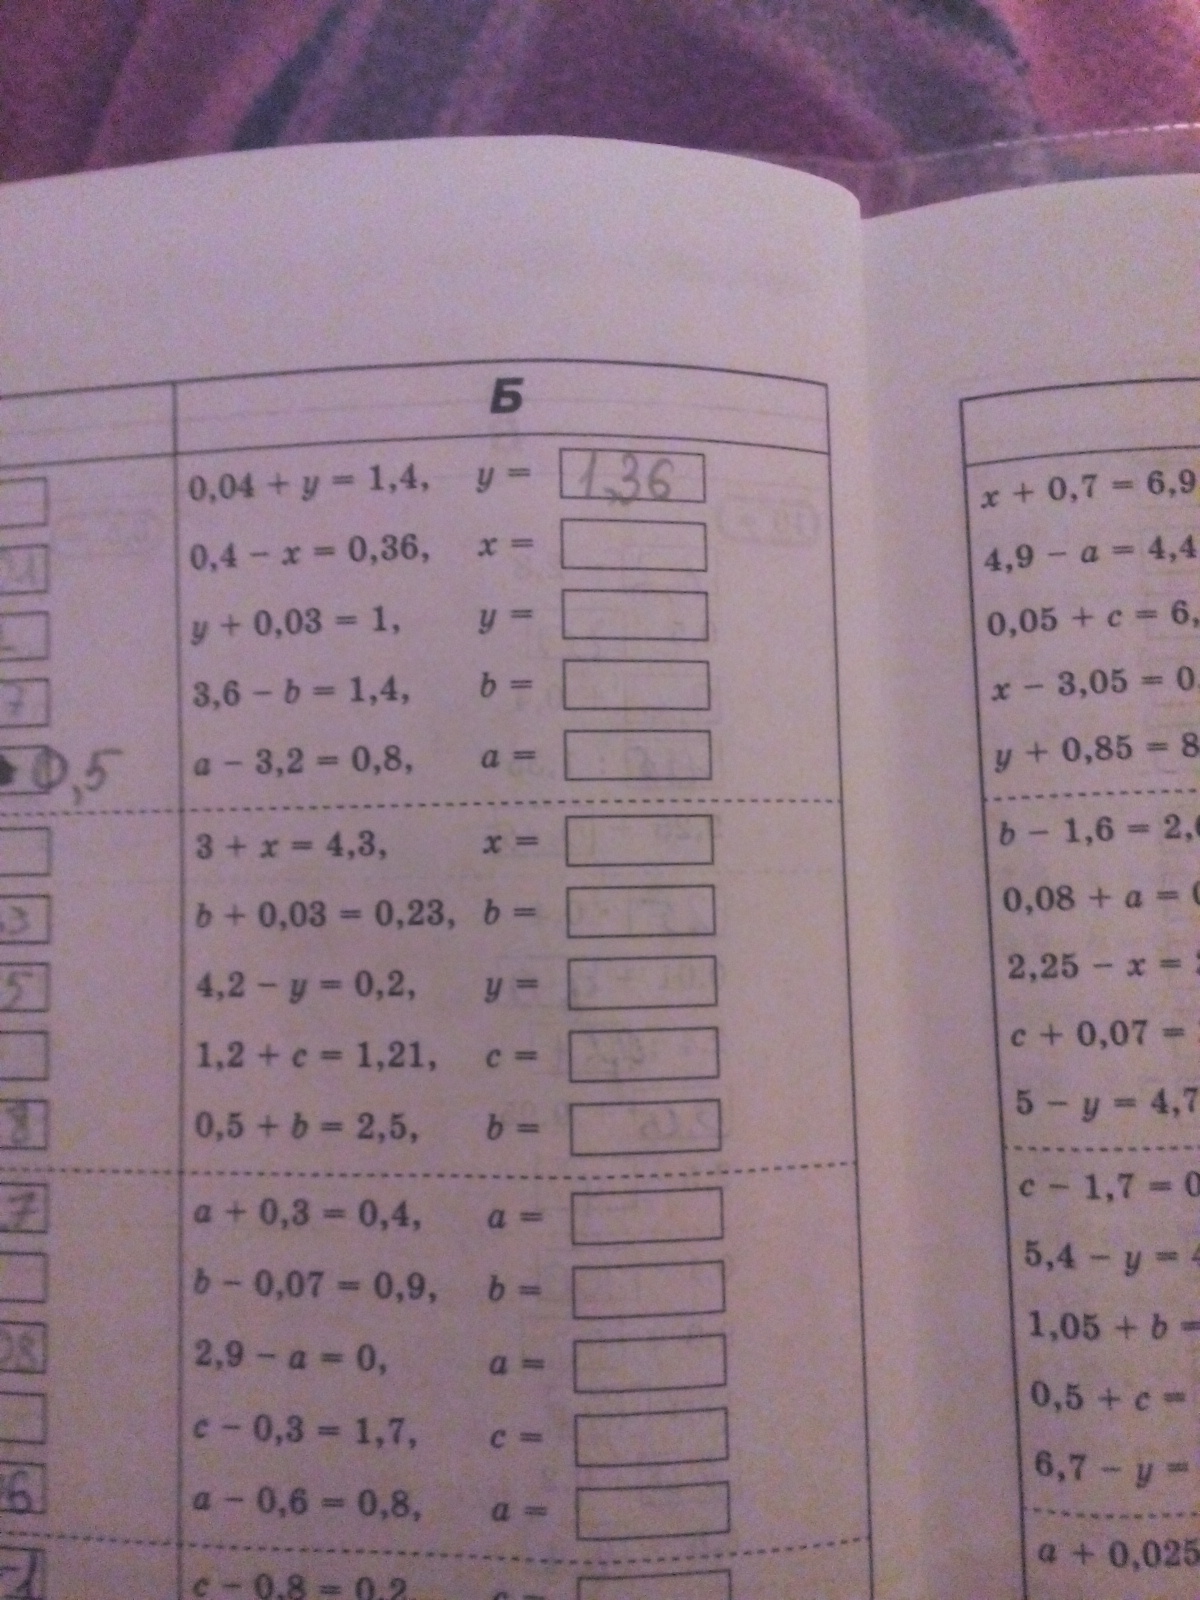 Б
0,04 + y = 1,4, y = 1,36
0,4 − x = 0,36, x =
y + 0,03 = 1, y =
3,6 − b = 1,4, b =
a − 3,2 = 0,8, a =
3 + x = 4,3, x =
b + 0,03 = 0,23, b =
4,2 − y = 0,2, y =
1,2 + c = 1,21, c =
0,5 + b = 2,5, b =
a + 0,3 = 0,4, a =
b − 0,07 = 0,9, b =
2,9 − a = 0, a =
c − 0,3 = 1,7, c =
a − 0,6 = 0,8, a =
c − 0,8 = 0,2
7
0,5
3
5
8
7
6
x + 0,7 = 6,9
4,9 − a = 4,4
0,05 + c = 6,
x − 3,05 = 0,
y + 0,85 = 8
b − 1,6 = 2,
0,08 + a =
2,25 − x =
c + 0,07 =
5 − y = 4,7
c − 1,7 = 0
5,4 − y =
1,05 + b =
0,5 + c =
6,7 − y =
a + 0,025